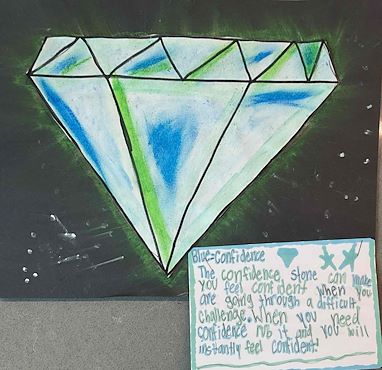 Blue=Confidence
The confidence stone can make
you feel confident when you
are going through a difficult
challenge. When you need
confidence rub it and you will
instantly feel confident!